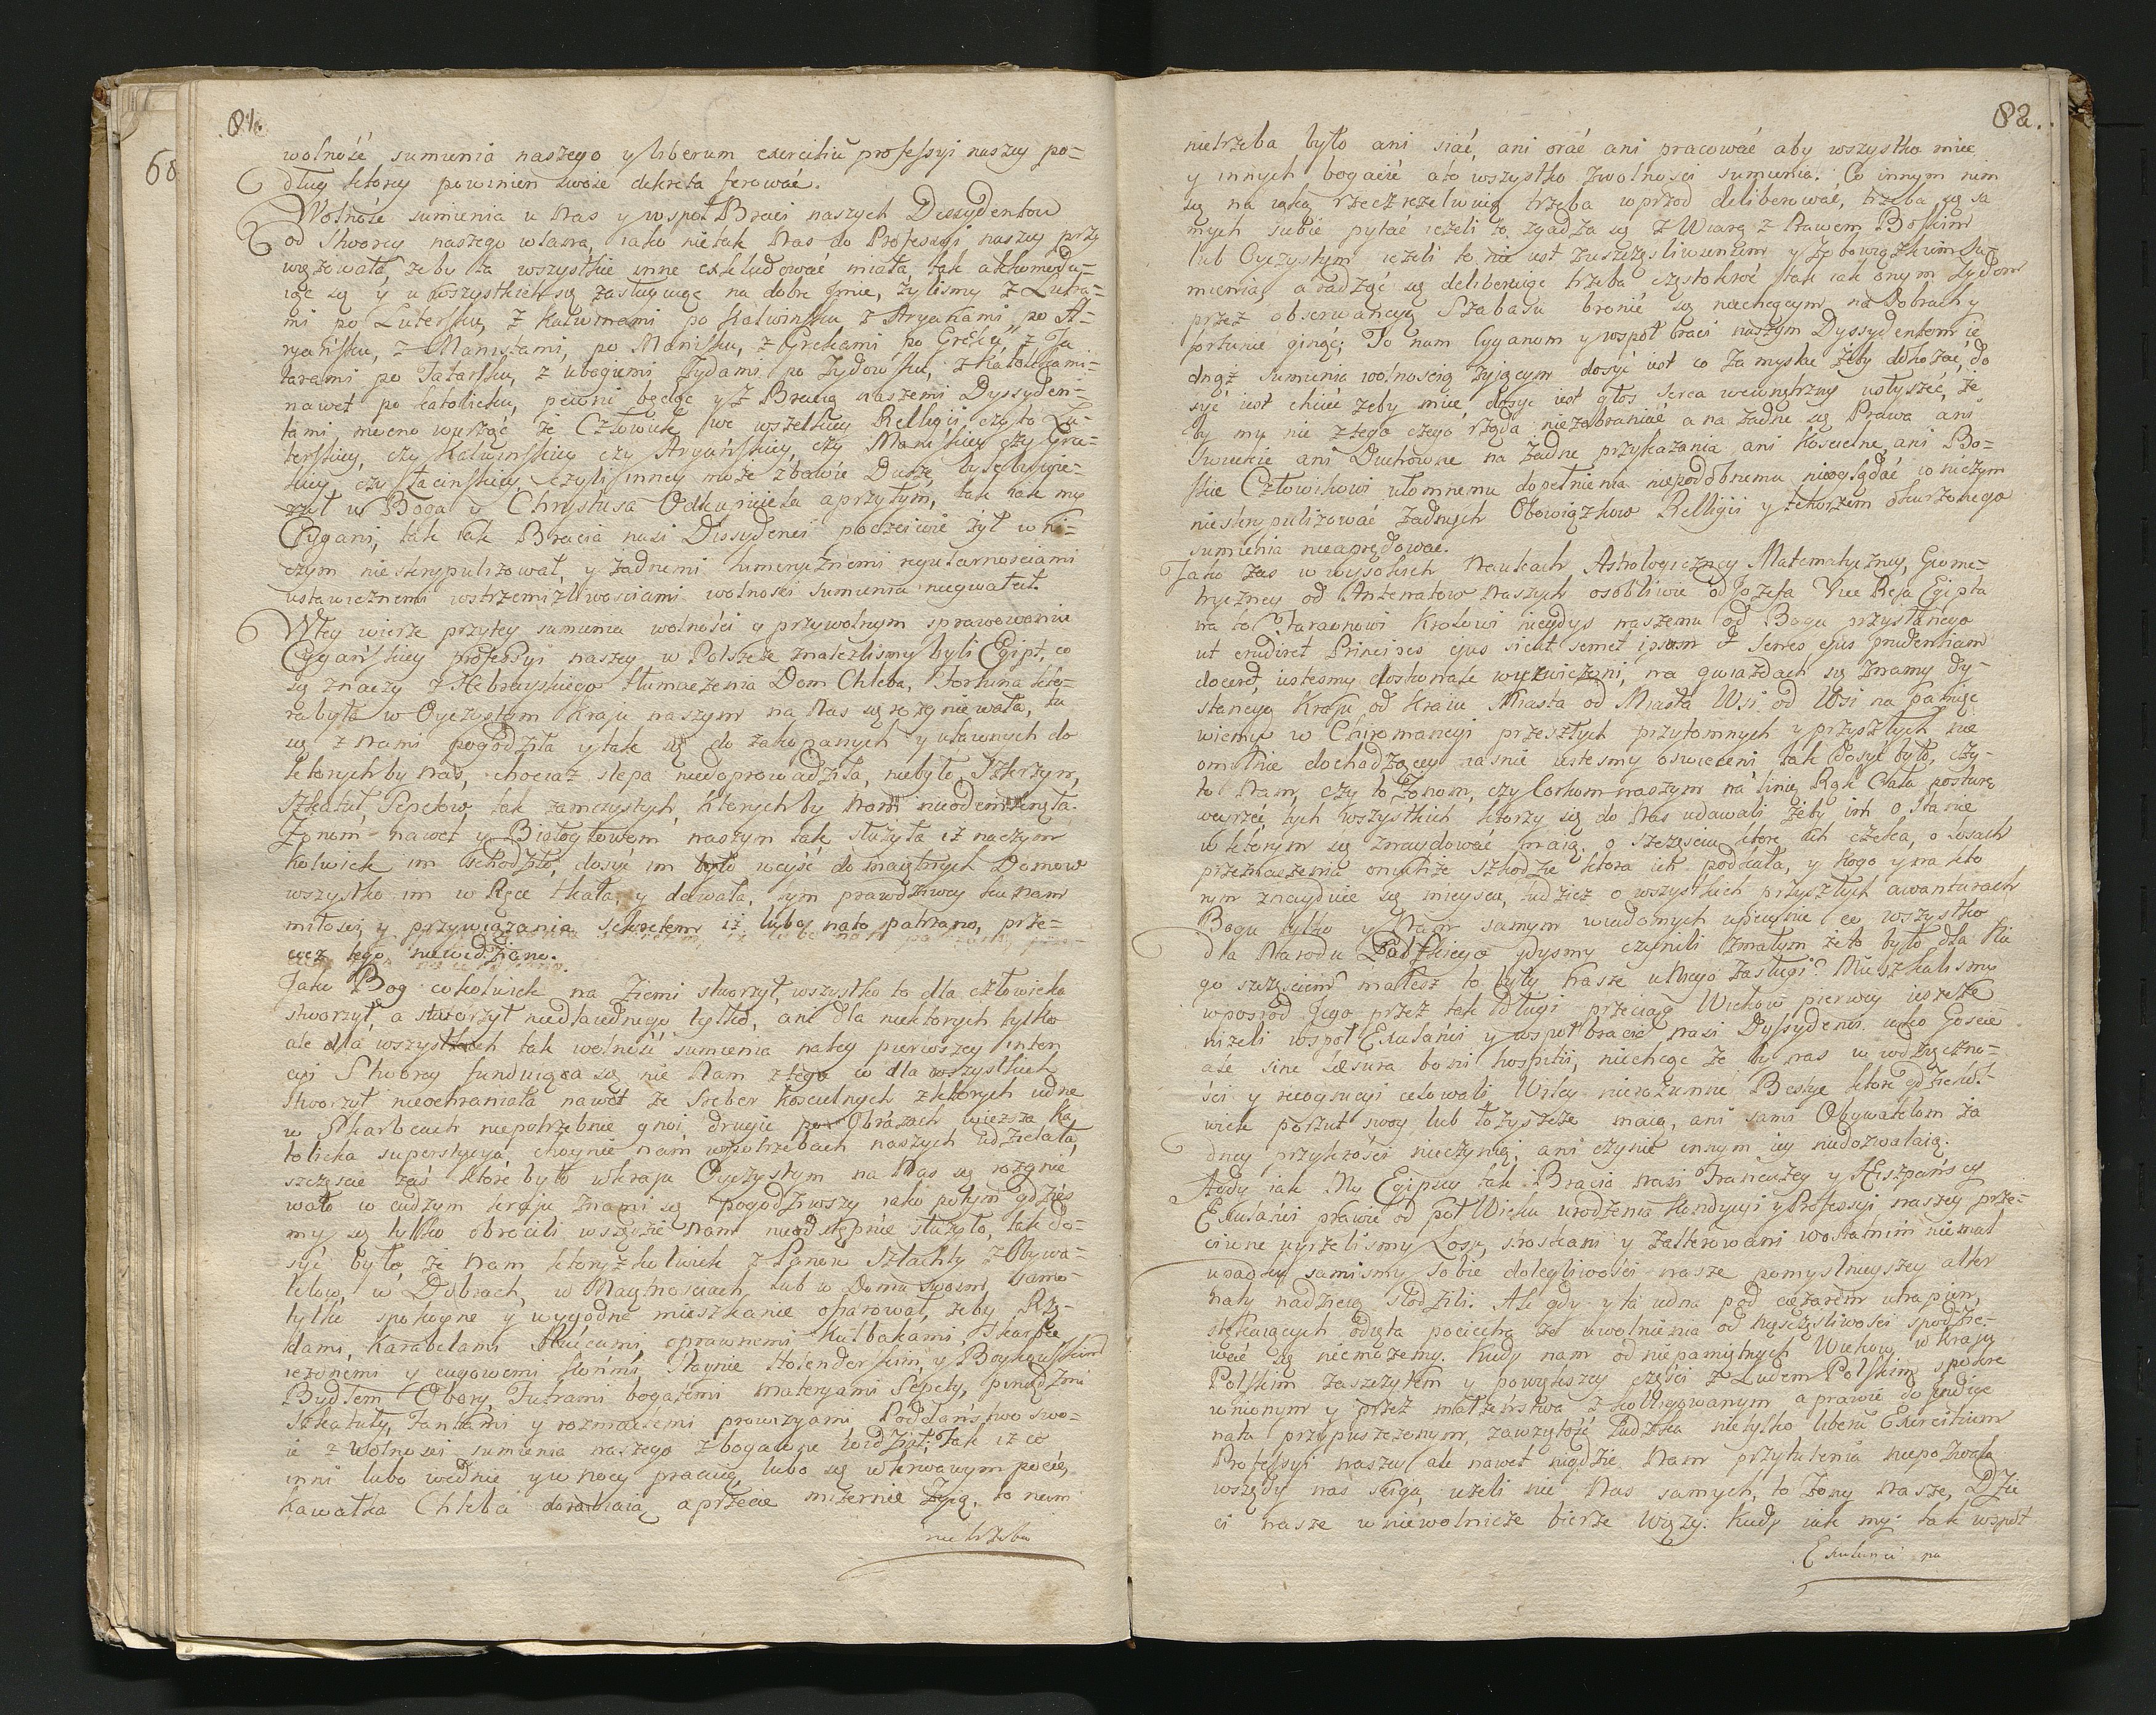 81.
wolność sumienia naszego y liberum exercitiū professyi naszey po=
dług ktorey powinien swoie dekreta ferować.
Wolność sumienia u Nas y wspoł Braci naszych Dessydentow
od Stworcy naszego własna, iako nietak Nas do Professyi naszey przy
wiązowała, żeby ta wszystkie inne exkludować miała, tak akkomodu=
iąc się y u wszystkich się zasługuiąc na dobre Jmie, żylismy z Lutra=
mi po Lutersku, z Kalwinami po Kalwińsku z Aryanami, po A=
ryańsku, z Manistami, po Manisku, z Grekami po Grecku, z Ta
tarami po Tatarsku, z ubogiemi Zydami po Zydowsku, z Katolikami
nawet po katolicku, pewni będąc y z Bracią naszemi Dyssyden=
tami mocno wierząc że Człowiek we wszelkiey Relligii, czy to Lu=
terskiey, czy Kalwinskiey czy Aryańskiey, czy Maniskiey czy Gre=
kiey czy Łacinskiey, czyli inney może zbawić Duszę, byle wie=
rzył w Boga y Chrystusa Odkupiciela a przytym, tak iak my
Cygani, tak iak Bracia nasi Dissydenci poczciwie żył w ni=
czym nieskrupulizował, y żadnemi regularnosciami
ustawicznemi wstrzemięzliwosciami wolnosci sumienia niegwałcił.
W tey wierze przy tey sumienia wolności y przywolnym sprawowaniu
Cygańskiey professyi naszey w Polszcze znalezlismy byli Egipt, co
się znaczy z Hebrayskiego tłumaczenia Dom Chleba, Fortuna kto=
ra była w Oyczystym Kraju naszym na Nas się rozgniewała, tu
się z Nami pogodziła y tak się do zakopanych y utaionych do
ktorychby Nas, chociaż slepa niedoprowadziła, niebyło Szkrzyn,
Szkatuł, Sepetow, tak zamczystych, ktorychby Nam nieodemknęła.
Zonom nawet y Białogłowom naszym tak służyła iż na czym
kolwiek im schodziło, dosyć im było weyść do maiętnych Domow
wszystko im w Ręce tkała, y dawała, tym prawdziwey ku Nam
miłosci y przywiązania sekretem iż lubo na to patrzano, prze=
cież tego niewidziano.
Jako Bog cokolwiek na Ziemi stworzył, wszystko to dla człowieka
stworzył, a stworzył niedlaiednego tylko, ani dla niektorych tylko
ale dla wszystkich tak wolność sumienia na tey pierwszey inten
cyi Stworcy funduiąca się nic Nam z tego co dla wszystkich
stworzył nieochraniała nawet ze Sreber Koscielnych z ktorych iedne
w Skarbcach niepotrzebnie gnoi, drugie po Obrazach wiesza Ka
tolicka superstycya, choynie nam w potrzebach naszych udzielała,
szczęscie zaś ktore było w kraju Oyczystym na Nas się rozgnie
wało w cudzym kraju z nami się pogodziwszy iako potym gdzies
my się tylko obrocili wszędzie nam nieodstępnie służyło, tak do=
syć było, że Nam ktoryżkolwiek z Panow Szlachty z Obywa=
telow, w Dobrach, w Maiętnosciach, lub w Domu swoim, samo
tylko spokoyne y wygodne mieszkanie ofiarował, żeby Rzę=
dami, Karabelami Tureckiemi, oprawnemi Kulbakami, Skarbce
iezdnemi y cugowemi końmi, stajnie Holenderskim y
Bydłem Obory, Futrami bogatemi materyami Sepety, pieniędzmi
Szkatuły, Fantami y rozmaitemi prowizyami Poddaństwo swo=
ie z Wolnosci sumienia naszego zbogacone widział; Tak iż co
inni lubo wednie y w nocy pracuią, lubo się w krwawym pocie
kawałka Chleba dorabiaią a przecie mizernie żyią, to nam
nietrzeba
82.
nietrzeba było ani siać, ani orać ani pracować aby wszystko mieć
y innych bogacić a to wszystko z wolnosci sumienia. Co innym nim
się na iaką rzecz rezolwuią trzeba wprzod deliberować, trzeba się sa
mych siebie pytać ieżeli to zgadza się z Wiarą z Prawem Boskim
lub Oyczystym ieżeli to nie iest z uszczęsliwieniem y z obowiązkiem Su=
mienia, a radząc się deliberuiąc trzeba częstokroć tak iak onym Zydom
przez obserwancyą Szabasu bronić się niechcącym, na Dobrach y
fortunie ginąć; To nam Cyganom y wspoł braci naszym Dyssydentom ie
dnąż sumienia wolnoscią żyiącym dosyć iest co zamyslić żeby dokazać, do
syć iest chcieć żeby mieć, dosyć iest głos serca wewnętrzny usłyszeć, że
by mu nic z tego czego rząda niezabraniać a na żadne się Prawa ani
Swieckie ani Duchowne na żadne przykazania ani Koscielne, ani Bo=
skie Człowiekowi ułomnemu do pełnienia niepodobnemu nieoglądać w niczym
nieskrupulizować żadnych Obowiązkow Relligii y tchorzem obkurzonego
sumienia
Jako zas w wysokich Naukach Astrologiczney Matematyczney, Geome=
tryczney od Antenatow Naszych osobliwie od Jozefa Vice Reja Egiptu
na to Pharaonowi Krolowi niegdys naszemu od Boga przysłanego
ut erudiret Principes ejus sicut semet ipsum et Senes ejus prudentiam
doceret, iestesmy doskonale wycwiczeni, na gwiazdach się znamy dy=
stancyą Kraju od Kraiu Miasta od Miasta Wsi od Wsi na pamięć
wiemy w Chiromancyi przeszłych przytomnych y przyszłych nie
omylnie dochodzącey iasnie iestesmy oswieceni tak dosyć było, czy
to Nam, czy to Zonom, czy Corkom naszym na linię Rąk Ciała posturę
weyrzeć tych wszystkich ktorzy się do Nas udawali żeby im o stanie
w ktorym się znaydować maią. o szczęsciu ktore ich czeka, o losach
przeznaczenia omylże szkodzie ktora ich podkała, y kogo y na kto
rym znayduie się mieyscu, tudzież o wszystkich przyszłych awanturach
Bogu tylko y Nam samym wiadomych upewnić co wszystko
dla Narodu Ludzkiego gdysmy czynili z małym że to było dla Nie
go szczęsciem? małesz to były Nasze u Niego zasługi? Mieszkalismy
wposrod Jego przez tak długi przeciąg Wiekow pierwey ieszcze
niżeli wspoł Exulanci y wspołbracie nasi Dyssydenci iako Goscie
ale sine laesura boni hospitis, niechcąc że by nas w wdzięczno=
ści y rekognicyi celowali Wilcy nierozumne Bestye ktore gdziekol=
wiek poszuł swoy lub łożyszcze maią, ani sami Obywatelom ża
dney przykrości nieczynią, ani czynić innym iey niedozwalaią.
Aż gdy iak My Egipscy tak Bracia Nasi Francuzcy y Hiszpańscy
Exulanci prawie od poł Wieku urodzenia Kondycyi y Professyi naszey prze=
ciwne uyrzelismy Losy, stroskani y zalterowani w ostatnim niemal
upadku samismy sobie dolegliwości nasze pomyslnieyszey alter
naty nadzieią słodzili. Ale gdy y ta iedna pod ciężarem utrapien
stękaiących odięta pociecha że uwolnienia od niesczęsliwosci spodzie=
wać się niemożemy. Kiedy nam od niepamiętnych Wiekow w Kraju
Polskim zaszczytem y powiększey części z Ludem Polskim spokre
wnionym y przez małżeństwa skolligowanym a prawie do Indige
natu przypuszczonym, zawziętość Ludzka nietylko liberū Exercitium
Professyi naszey ale nawet nigdzie Nam przytulenia niepozwala
wszędy nas sciga, ieżeli nie Nas samych, to Zony Nasze, Dzie
ci nasze w niewolnicze bierze więzy. Kiedy iak my tak wspoł
Exulanci na